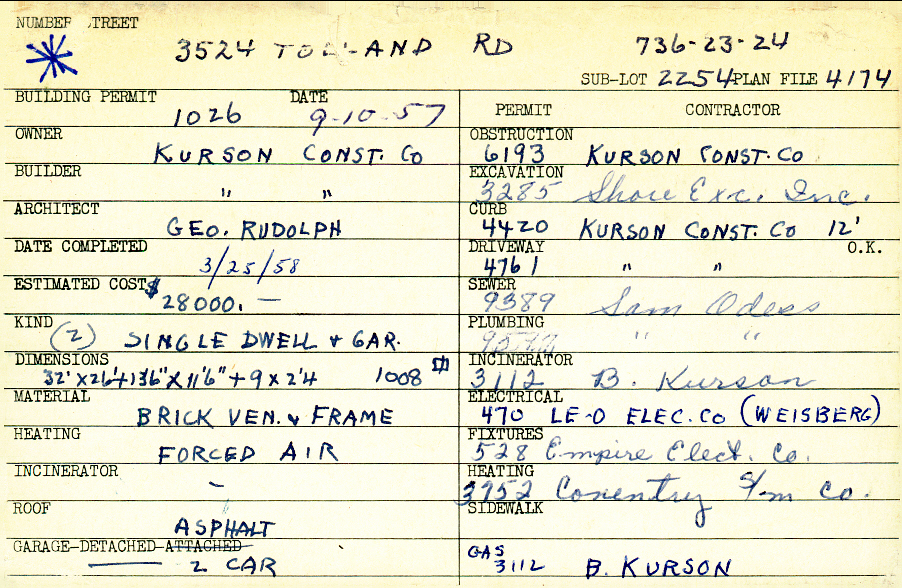 NUMBER STREET
3524 RD 736-23-24
SUB-LOT 2254 PLAN FILE 4174
BUILDING PERMIT DATE
1026 9-10-57
OWNER
KURSON CONST. CO
BUILDER
" "
ARCHITECT
GEO. RUDOLPH
DATE COMPLETED
3/25/58
ESTIMATED COST $
28000. —
KIND
(2) SINGLE DWELL & GAR.
DIMENSIONS
32' X 26'+ X 11'6" + 9 X 2'4 1008
MATERIAL
BRICK VEN. & FRAME
HEATING
FORCED AIR
INCINERATOR
-
ROOF
ASPHALT
GARAGE-DETACHED-ATTACHED
2 CAR
PERMIT CONTRACTOR
OBSTRUCTION
6193 KURSON CONST. CO
EXCAVATION
3285 Shore Exc. Inc.
CURB
4420 KURSON CONST. CO 12'
DRIVEWAY O.K.
4761 " "
SEWER
9389 Sam Odess
PLUMBING
" "
INCINERATOR
3112 B. Kurson
ELECTRICAL
470 LE-O ELEC. CO (WEISBERG)
FIXTURES
528 Empire Elect. Co.
HEATING
3952 Coventry S/m Co.
SIDEWALK
GAS
3112 B. KURSON